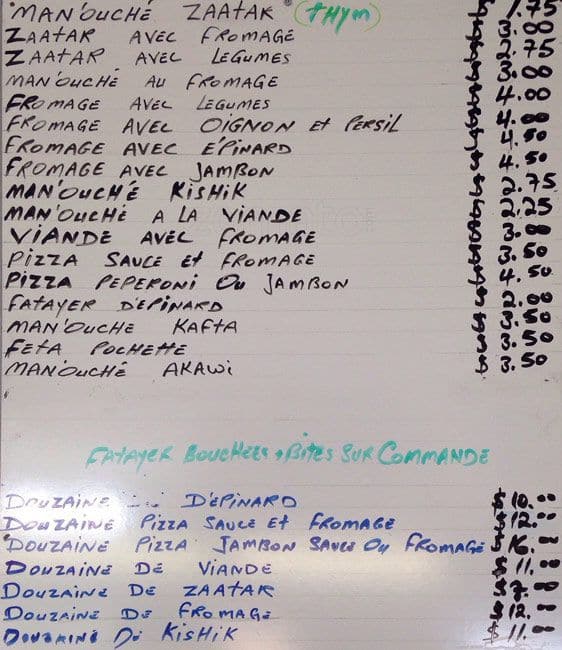 MAN'OUCHÉ ZAATAR (THYM) $ 1.75
ZAATAR AVEC FROMAGE $ 3.00
ZAATAR AVEC LEGUMES $ 2.75
MAN'OUCHÉ AU FROMAGE $ 3.00
FROMAGE AVEC LEGUMES $ 4.00
FROMAGE AVEC OIGNON ET PERSIL $ 4.00
FROMAGE AVEC ÉPINARD $ 4.50
FROMAGE AVEC JAMBON $ 4.50
MAN'OUCHÉ KISHIK $ 2.75
MAN'OUCHÉ A LA VIANDE $ 2.25
VIANDE AVEC FROMAGE $ 3.00
PIZZA SAUCE ET FROMAGE $ 3.50
PIZZA PEPERONI OU JAMBON $ 4.50
FATAYER D'EPINARD $ 2.00
MAN'OUCHE KAFTA $ 3.50
FETA POCHETTE $ 3.50
MAN'OUCHÉ AKAWI $ 3.50
FATAYER BOUCHEES + BITES SUR COMMANDE
DOUZAINE D'ÉPINARD $ 10.00
DOUZAINE PIZZA SAUCE ET FROMAGE $ 12.00
DOUZAINE PIZZA JAMBON SAUCE OU FROMAGE $ 16.00
DOUZAINE DE VIANDE $ 11.00
DOUZAINE DE ZAATAR $ 7.00
DOUZAINE DE FROMAGE $ 12.00
DOUZAINE DE KISHIK $ 11.00